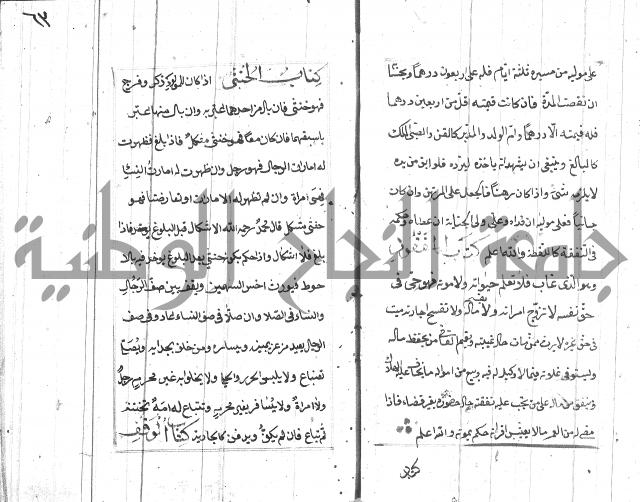 على مولاه من مسيره ثلثة ايام فله على اربعون درهما وبحسابه
ان نقصت المدة فان كانت قيمته اقل من اربعين درهما
فله قيمته الا درهما وام الولد والمدبر كالقن والصبي
كالبالغ وينبغي ان يشهد انه ياخذه ليرده فلو ابق من يده
لا يلزمه شئ واذا كان رهنا فالجعل على المرتهن وان كان
جانيا فعلى مولاه ان فداه وعلى ولي الجناية ان اعطاه وحكمه
في النفقة كاللقطة والله اعلم كتاب المفقود
وهو الذي غاب فلا تعلم حيوته ولا موته فهو حي في
حق نفسه لا تزوج امراته ولا يقسم ماله ولا تفسخ اجارته ميت
في حق غيره لا يرث ممن مات حال غيبته ويقيم القاضي من يحفظ ماله
ويستوفي غلاته فيما لا وكيل له فيه ويبيع من امواله ما يخاف عليه الهلاك
وينفق من ماله على من تجب عليه نفقته حال حضوره بغير قضاء فاذا
مضى له من العمر ما لا يعيش اقرانه حكم بموته والله اعلم
٦٣
كتاب الخنثى اذا كان للمولود ذكر وفرج
فهو خنثى فان بال من احدهما اعتبر به وان بال منهما اعتبر
باسبقهما فان كان معا فهو خنثى مشكل فاذا بلغ فظهرت
له امارات الرجال فهو رجل وان ظهرت له امارات النساء
فهي امراة وان لم تظهر له الامارات او تعارضتا فهو
خنثى مشكل قال محمد رحمه الله الاشكال قبل البلوغ فاذا
بلغ فلا اشكال واذا حكم بكونه خنثى يؤخذ فيه بالا
حوط فيورث اخس السهمين ويقف بين صف الرجال
والنساء في الصلاة وان صلا في صف النساء اعاد وفي صف
الرجال يعيد من عن يمينه ويساره ومن خلفه بحذايه ويصلي
بقناع ولا يلبس الحرير والحلي ولا يخلو به غير محرم رجل
ولا امراة ولا يسافر بغير محرم وتبتاع له امة تختنه
ثم تباع فان لم يكن كتاب الوقف
جامعة النجاح الوطنية